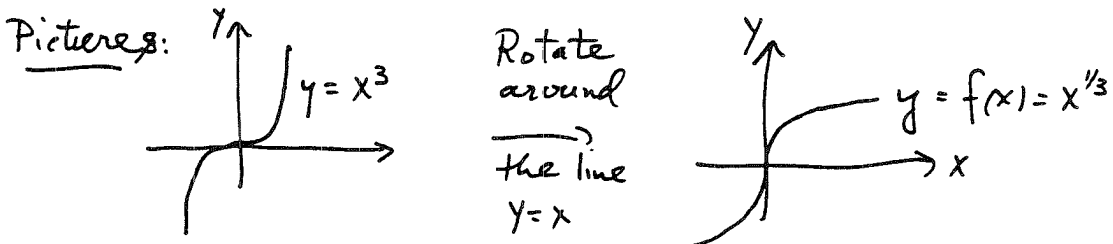 Pictures:
Y
y = x³
Rotate
around
the line
Y = x
Y
y = f(x) = x^{1/3}
x